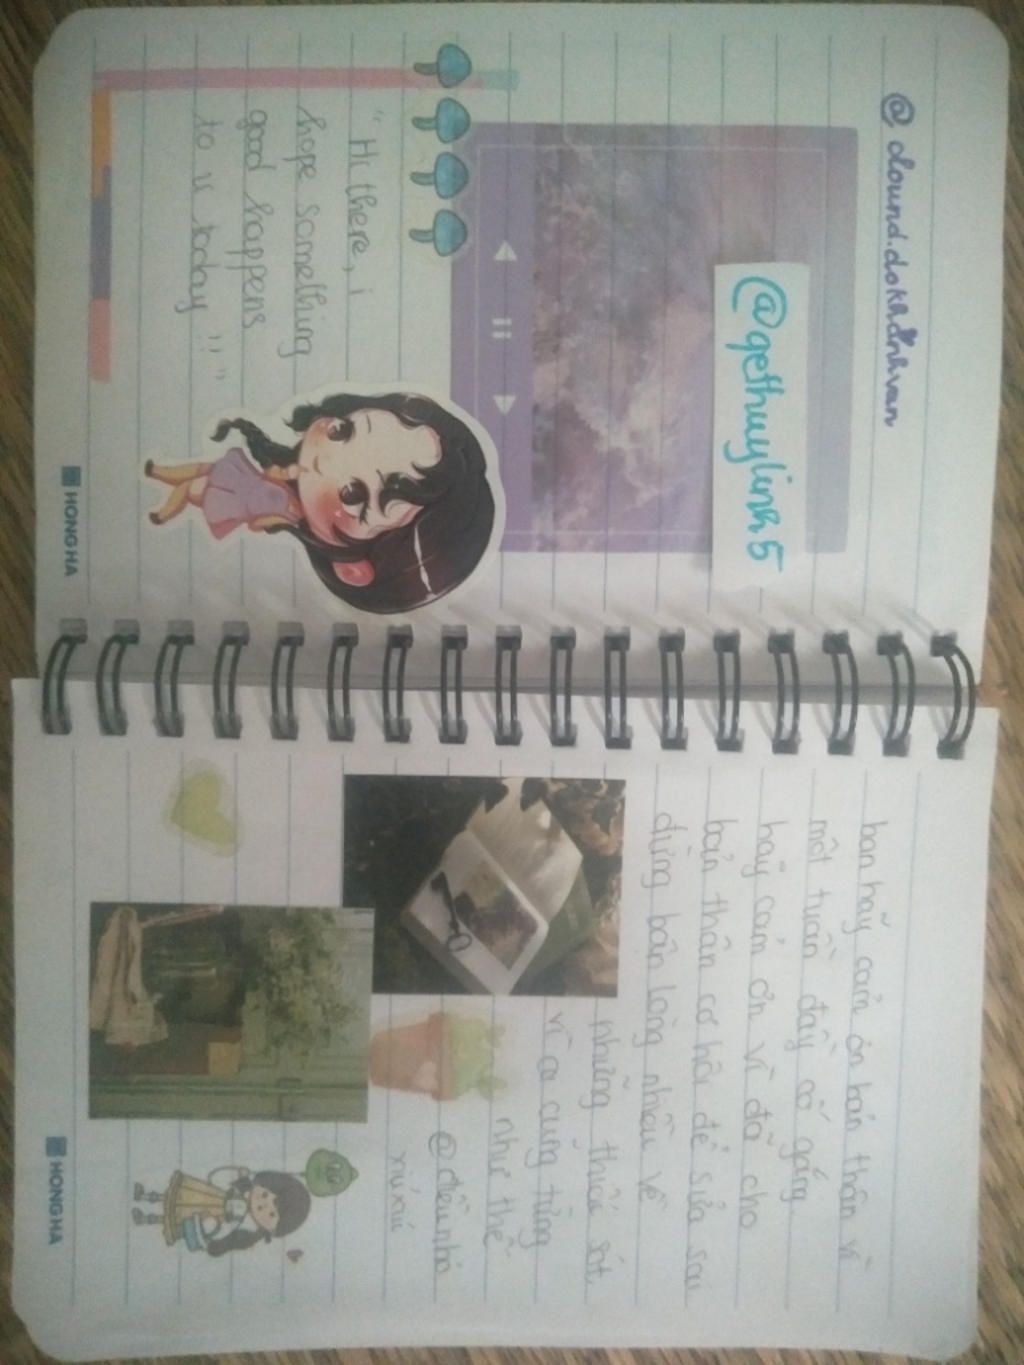 @dound.dokhánhvan
@gethuylinh5
"Hi there, i
hope something
good happens
to u today !! "
HONG HA
bạn hãy cảm ơn bản thân vì
một tuần đầy cố gắng
hãy cảm ơn vì đã cho
bản thân cơ hội để sửa sai
đừng bận lòng nhiều về
những thiếu sót
vì ai cũng từng
như thế
@điềunhỏ
xiuxiu
HONG HA